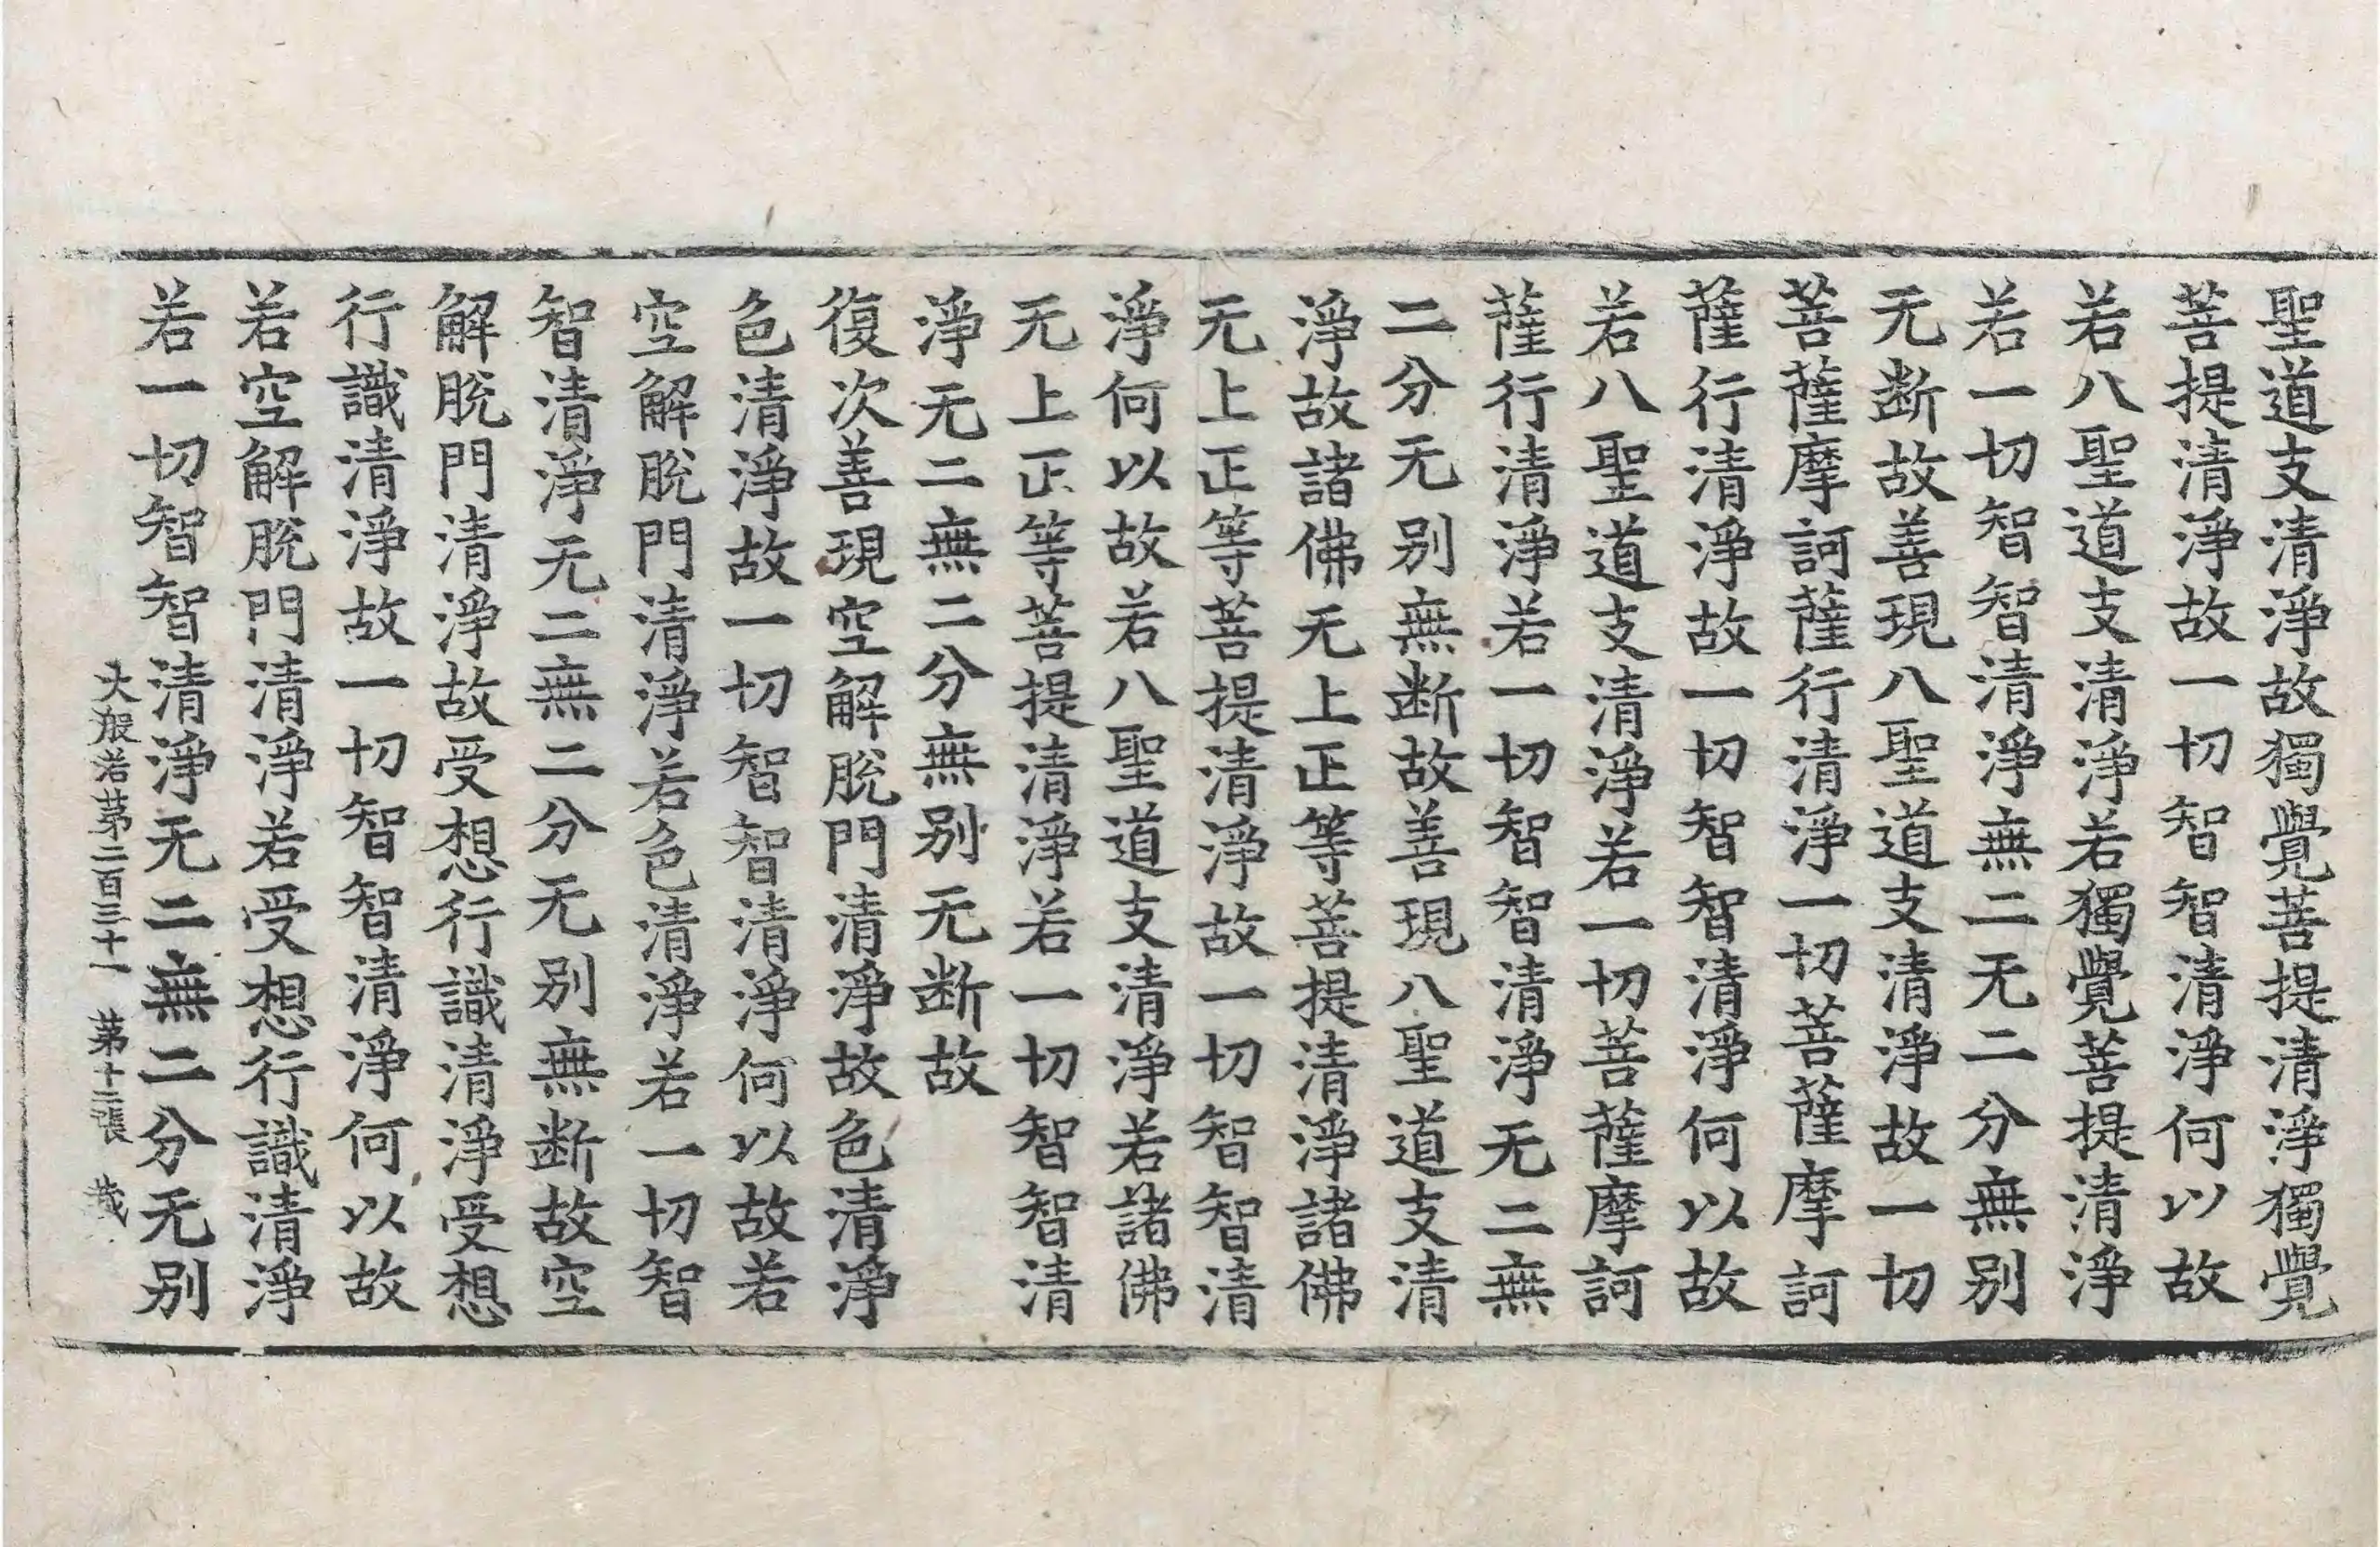 聖道支清淨故獨覺菩提清淨獨覺
菩提清淨故一切智智清淨何以故
若八聖道支清淨若獨覺菩提清淨
若一切智智清淨無二无二分無别
无断故善現八聖道支清淨故一切
菩薩摩訶薩行清淨一切菩薩摩訶
薩行清淨故一切智智清淨何以故
若八聖道支清淨若一切菩薩摩訶
薩行清淨若一切智智清淨无二無
二分无别無断故善現八聖道支清
淨故諸佛无上正等菩提清淨諸佛
无上正等菩提清淨故一切智智清
淨何以故若八聖道支清淨若諸佛
无上正等菩提清淨若一切智智清
淨无二無二分無别无断故
復次善現空解脫門清淨故色清淨
色清淨故一切智智清淨何以故若
空解脫門清淨若色清淨若一切智
智清淨无二無二分无别無断故空
解脫門清淨故受想行識清淨受想
行識清淨故一切智智清淨何以故
若空解脫門清淨若受想行識清淨
若一切智智清淨无二無二分无别
大般若第二百三十一 第十二張